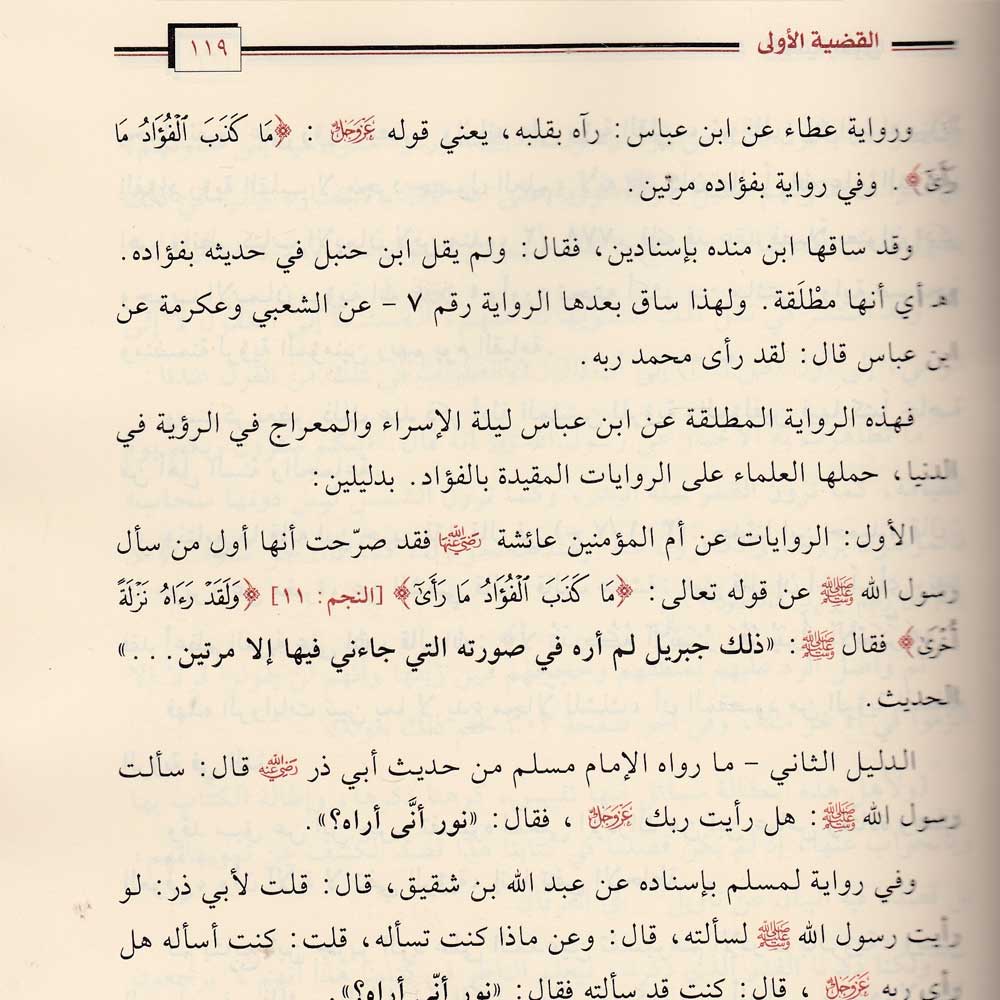 القضية الأولى
١١٩
ورواية عطاء عن ابن عباس: رآه بقلبه، يعني قوله عَزَّوَجَلَّ : ﴿مَا كَذَبَ ٱلْفُؤَادُ مَا
رَأَىٰٓ﴾. وفي رواية بفؤاده مرتين.
وقد ساقها ابن منده بإسنادين، فقال: ولم يقل ابن حنبل في حديثه بفؤاده.
اهـ أي أنها مطْلَقة. ولهذا ساق بعدها الرواية رقم ٧ – عن الشعبي وعكرمة عن
ابن عباس قال: لقد رأى محمد ربه.
فهذه الرواية المطلقة عن ابن عباس ليلة الإسراء والمعراج في الرؤية في
الدنيا، حملها العلماء على الروايات المقيدة بالفؤاد. بدليلين:
الأول: الروايات عن أم المؤمنين عائشة رَضِيَ اللَّهُ عَنْهَا فقد صرّحت أنها أول من سأل
رسول الله صَلَّى اللَّهُ عَلَيْهِ وَسَلَّمَ عن قوله تعالى: ﴿مَا كَذَبَ ٱلْفُؤَادُ مَا رَأَىٰٓ﴾ [النجم: ١١] ﴿وَلَقَدْ رَءَاهُ نَزْلَةً
أُخْرَىٰ﴾ فقال صَلَّى اللَّهُ عَلَيْهِ وَسَلَّمَ: «ذلك جبريل لم أره في صورته التي جاءني فيها إلا مرتين...»
الحديث.
الدليل الثاني – ما رواه الإمام مسلم من حديث أبي ذر رَضِيَ اللَّهُ عَنْهُ قال: سألت
رسول الله صَلَّى اللَّهُ عَلَيْهِ وَسَلَّمَ: هل رأيت ربك عَزَّوَجَلَّ ، فقال: «نور أنَّى أراه؟».
وفي رواية لمسلم بإسناده عن عبد الله بن شقيق، قال: قلت لأبي ذر: لو
رأيت رسول الله صَلَّى اللَّهُ عَلَيْهِ وَسَلَّمَ لسألته، قال: وعن ماذا كنت تسأله، قلت: كنت أسأله هل
رأى ربه عَزَّوَجَلَّ ، قال: كنت قد سألته فقال: «نور أنّى أراه؟».